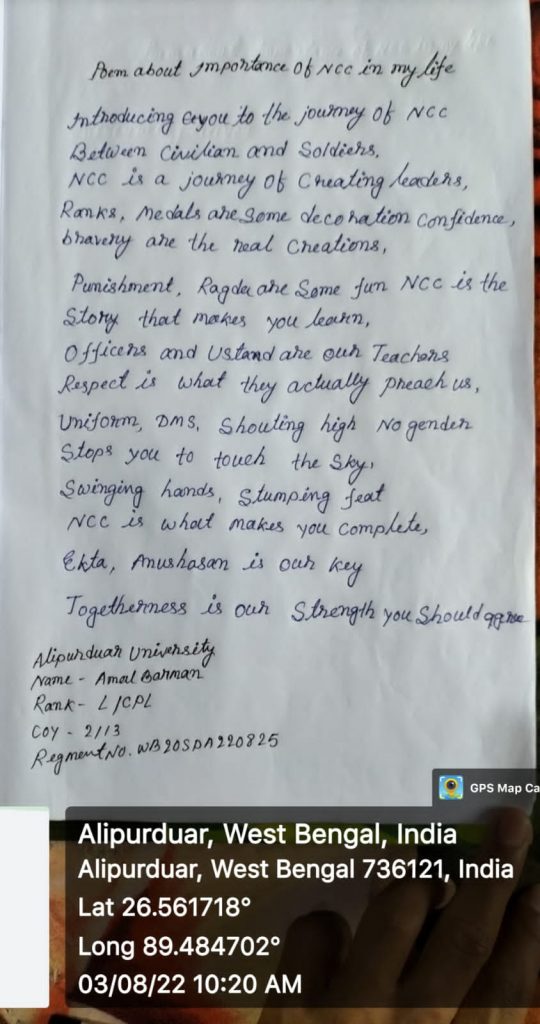 Poem about Importance Of NCC in my life
Introducing you to the journey Of NCC
Between Civilian and Soldiers,
NCC is a journey Of Creating leaders,
Ranks, Medals are Some decoration Confidence,
bravery are the real Creations,
Punishment, Ragda are Some fun NCC is the
Story that makes you learn,
Officers and Ustand are our Teachers
Respect is what they actually preach us,
Uniform, DMS, Shouting high No gender
Stops you to touch the Sky,
Swinging hands, Stumping feat
NCC is what makes you Complete,
Ekta, Anushasan is our key
Togetherness is our Strength you Should agree
Alipurduar University
Name - Amal Barman
Rank - L/CPL
COY - 2/13
Regment No. WB20SDA220825
GPS Map Ca
Alipurduar, West Bengal, India
Alipurduar, West Bengal 736121, India
Lat 26.561718°
Long 89.484702°
03/08/22 10:20 AM